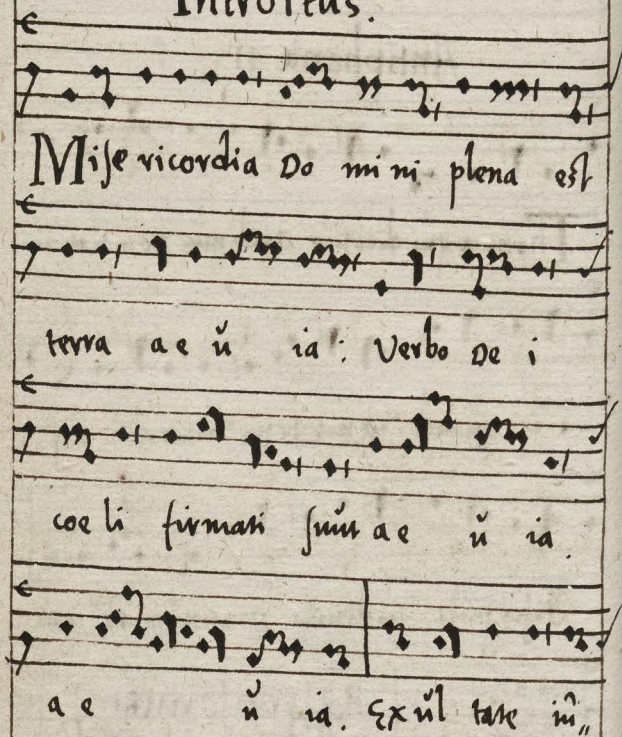 Introitus.
Mise ricordia Do mi ni plena est
terra a e ű ia : Verbo De i
coe li firmati sunt a e ű ia.
a e ű ia. Exul tate in,,